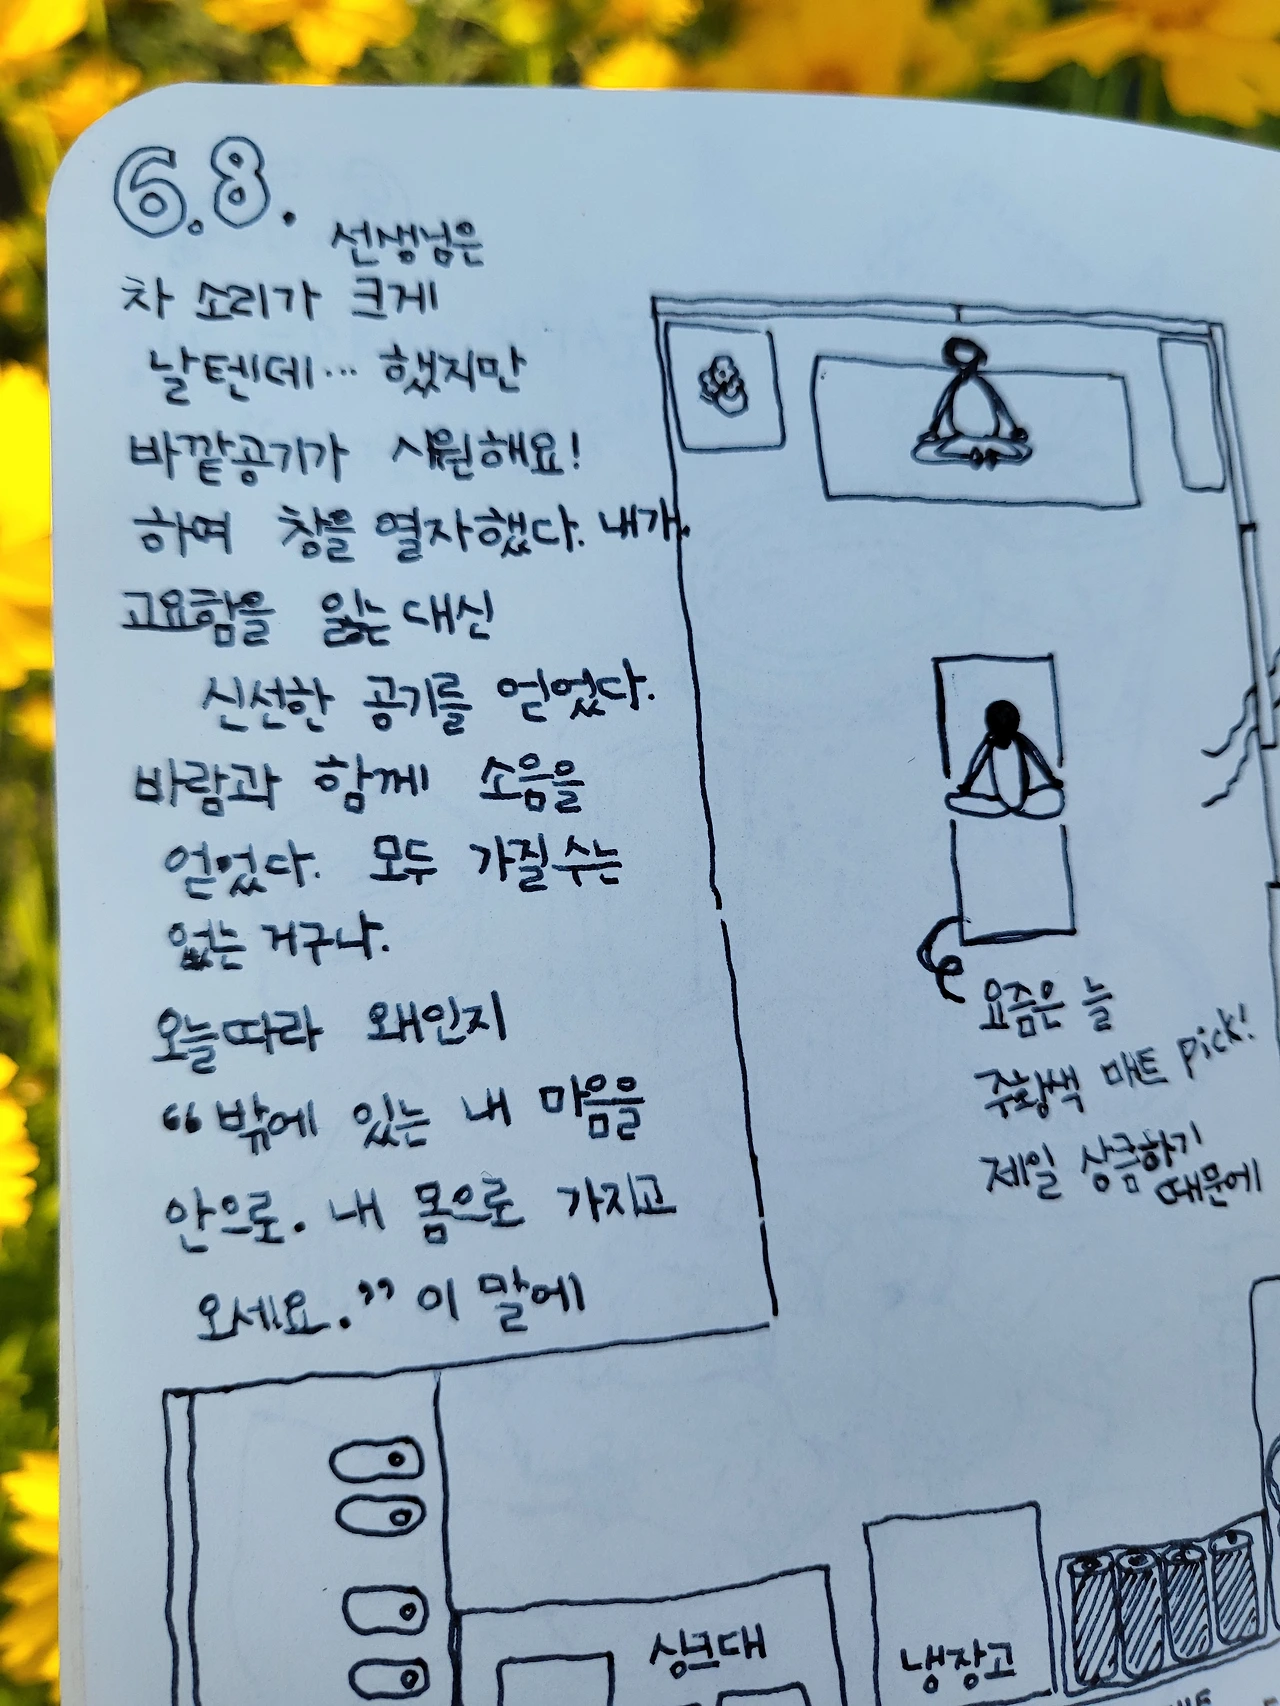 6.8.
선생님은
차 소리가 크게
날텐데… 했지만
바깥공기가 시원해요!
하여 창을 열자했다. 내가
고요함을 잃는 대신
신선한 공기를 얻었다.
바람과 함께 소음을
얻었다. 모두 가질수는
없는 거구나.
오늘따라 왜인지
“밖에 있는 내 마음을
안으로. 내 몸으로 가지고
오세요.” 이 말에
요즘은 늘
주황색 매트 pick!
제일 상큼하기
때문에
싱크대
냉장고